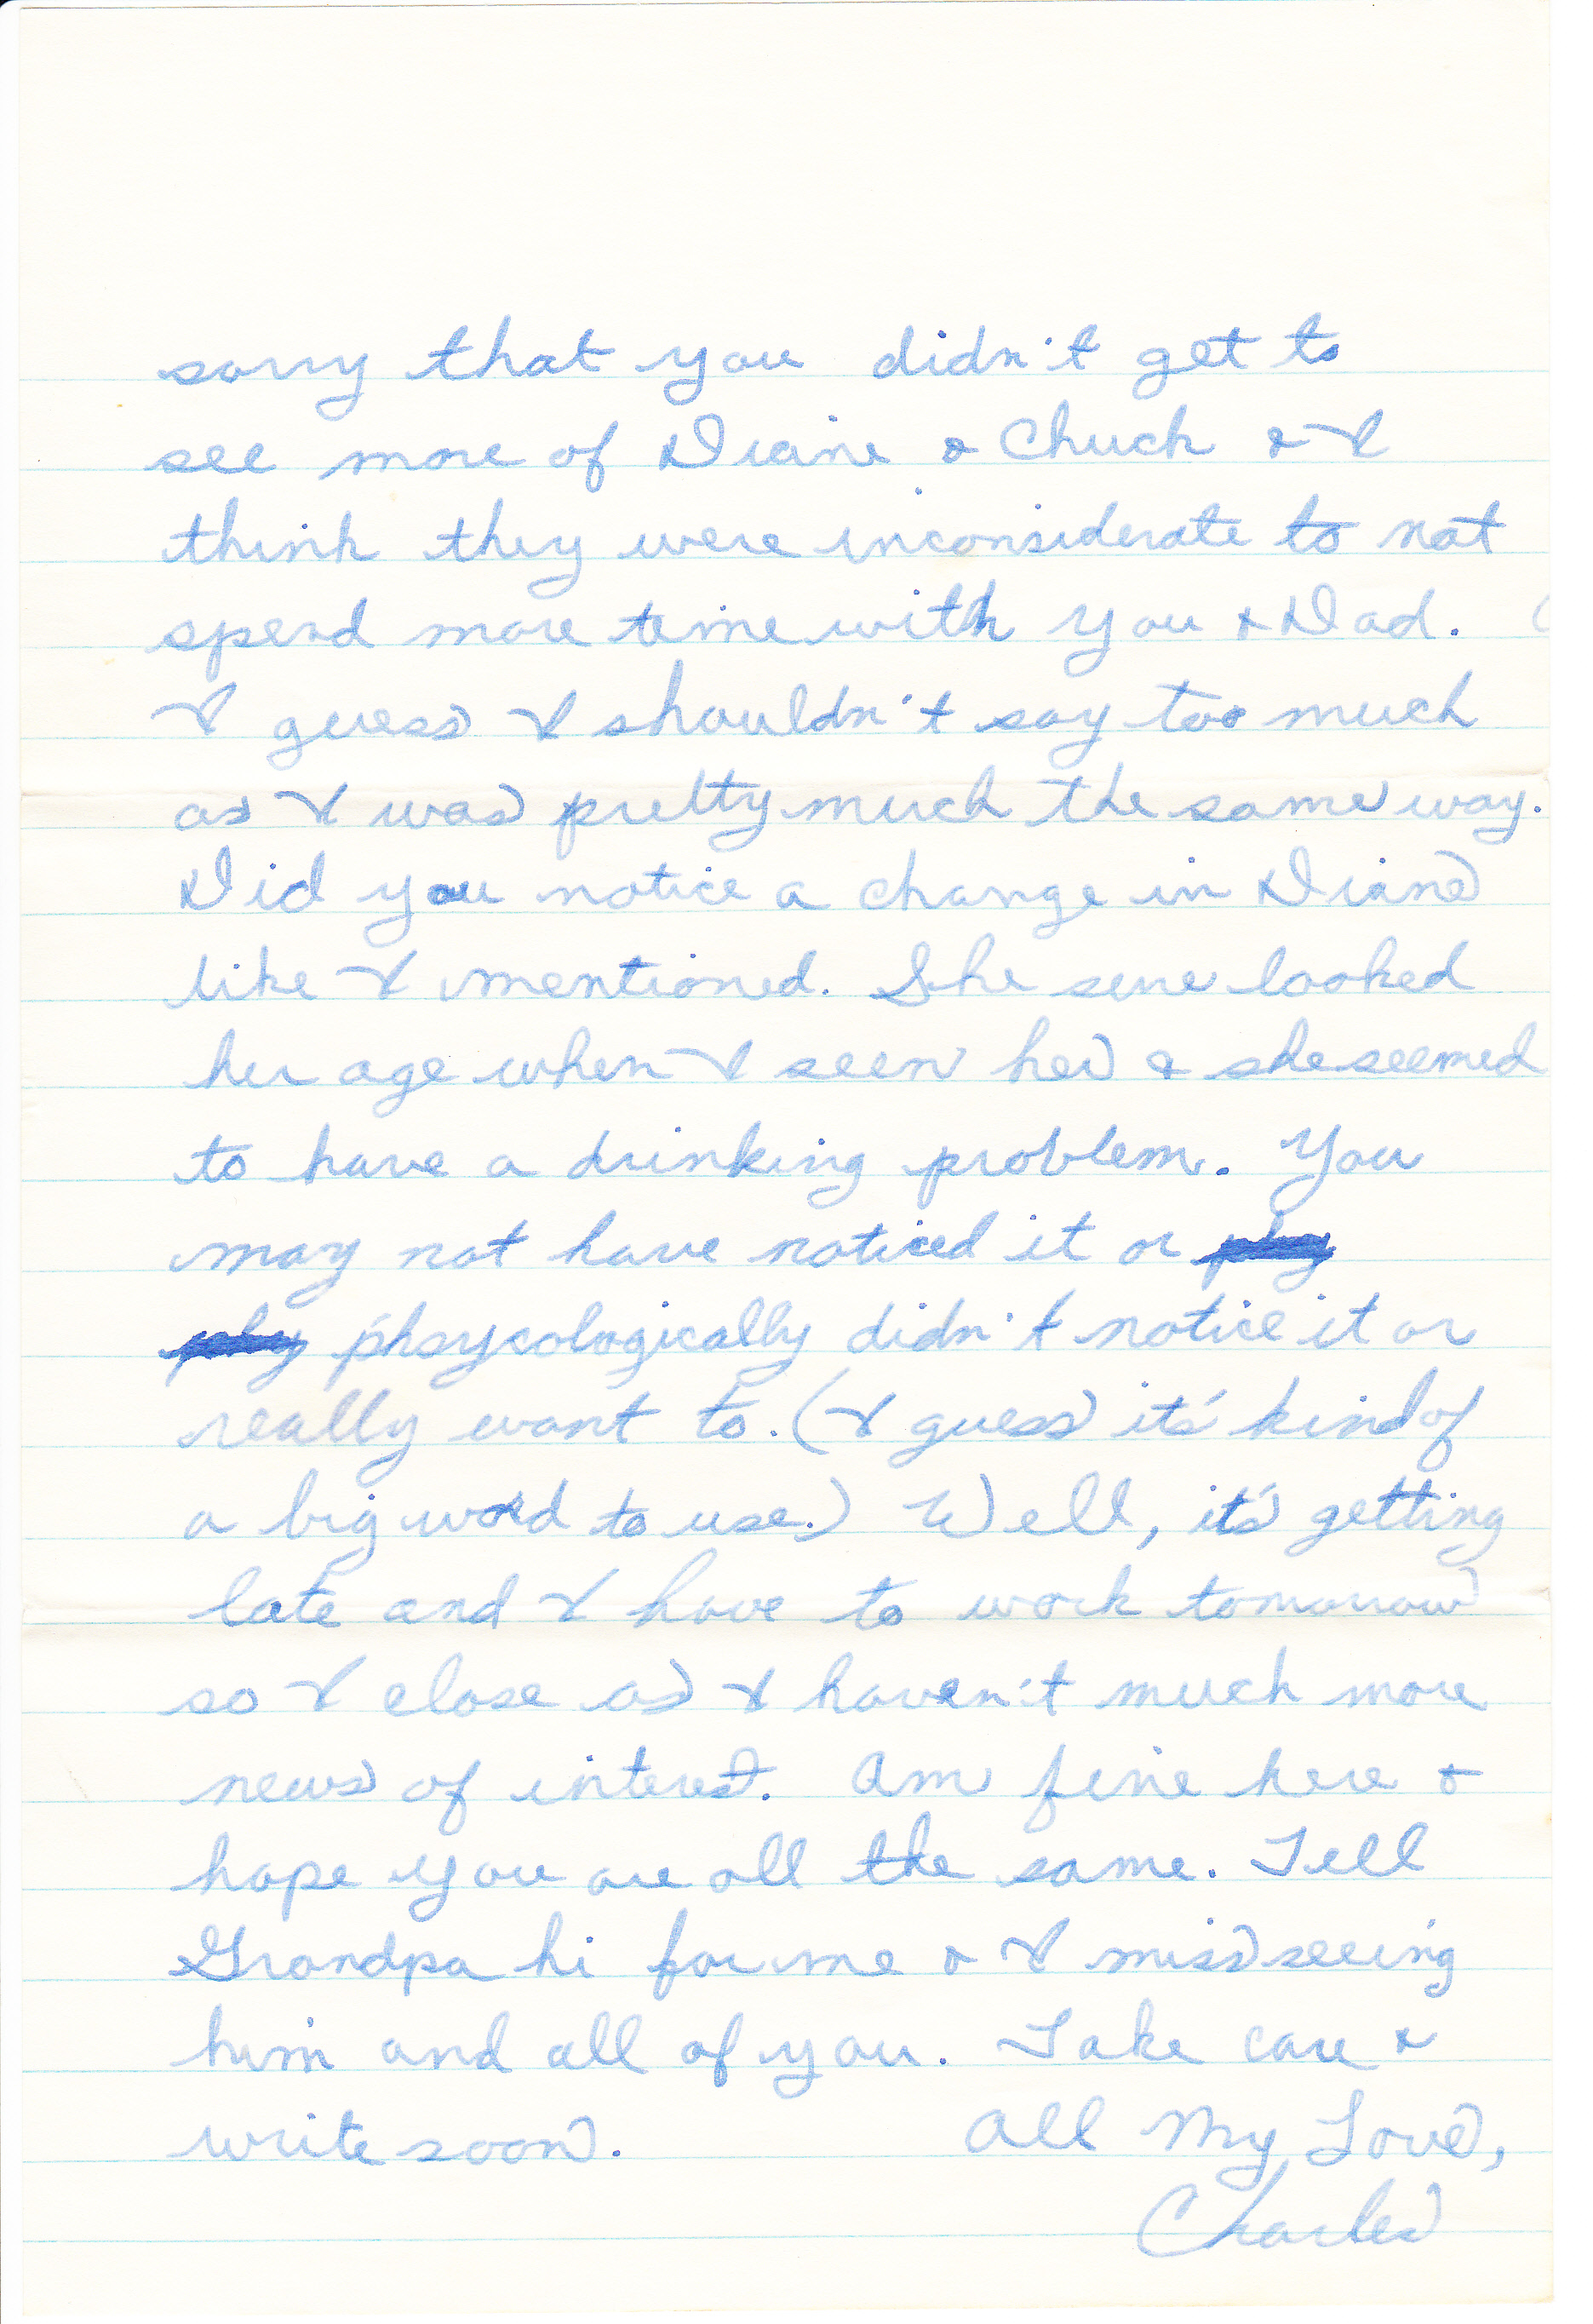 sorry that you didn't get to
see more of Diane & Chuck & I
think they were inconsiderate to not
spend more time with you & Dad.
I guess I shouldn't say too much
as I was pretty much the same way.
Did you notice a change in Diane
like I mentioned. She sure looked
her age when I seen her & she seemed
to have a drinking problem. You
may not have noticed it or phy
phy phsycologically didn't notice it or
really want to. (I guess it's kind of
a big word to use.) Well, it's getting
late and I have to work tomorrow
so I close as I haven't much more
news of interest. Am fine here &
hope you are all the same. Tell
Grandpa hi for me & I miss seeing
him and all of you. Take care &
write soon. All My Love,
Charles